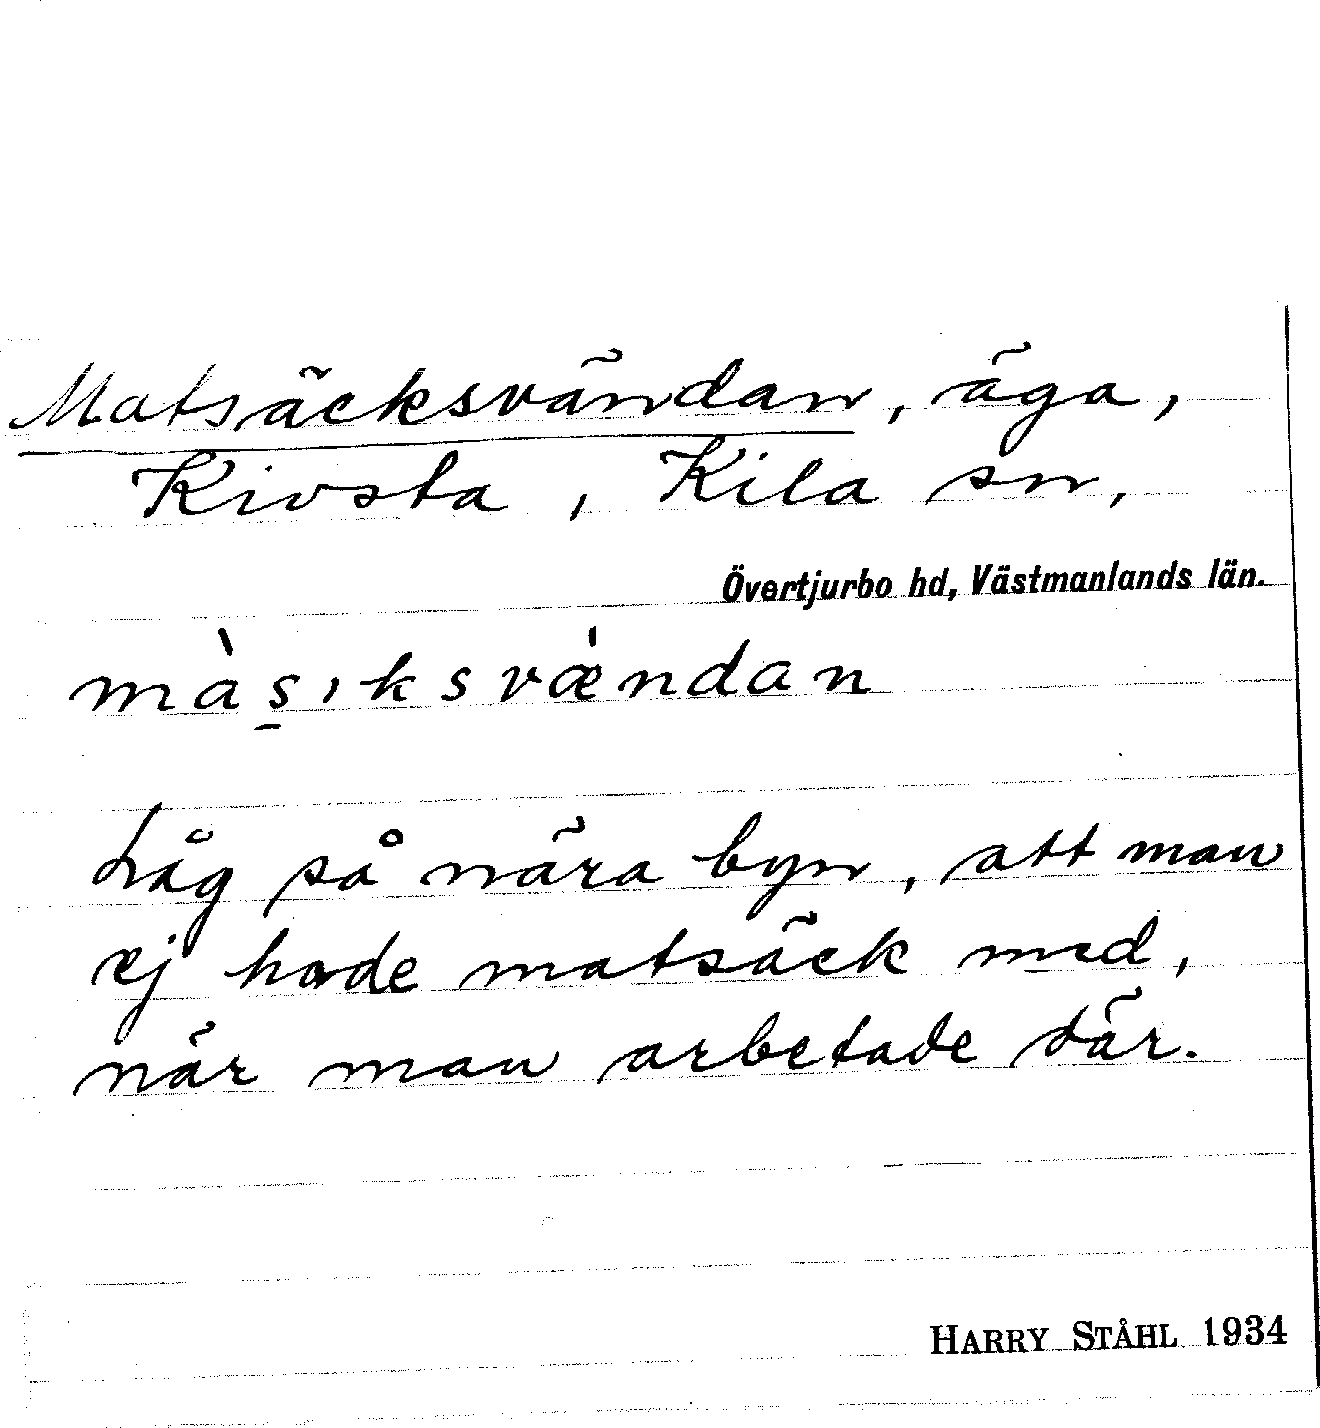 Matsäcksvändan, äga,
Kivsta, Kila sn,
Övertjurbo hd, Västmanlands län.
màs̱ıksvæ̀ndan
Låg så nära byn, att man
ej hade matsäck med,
när man arbetade där.
HARRY STÅHL 1934